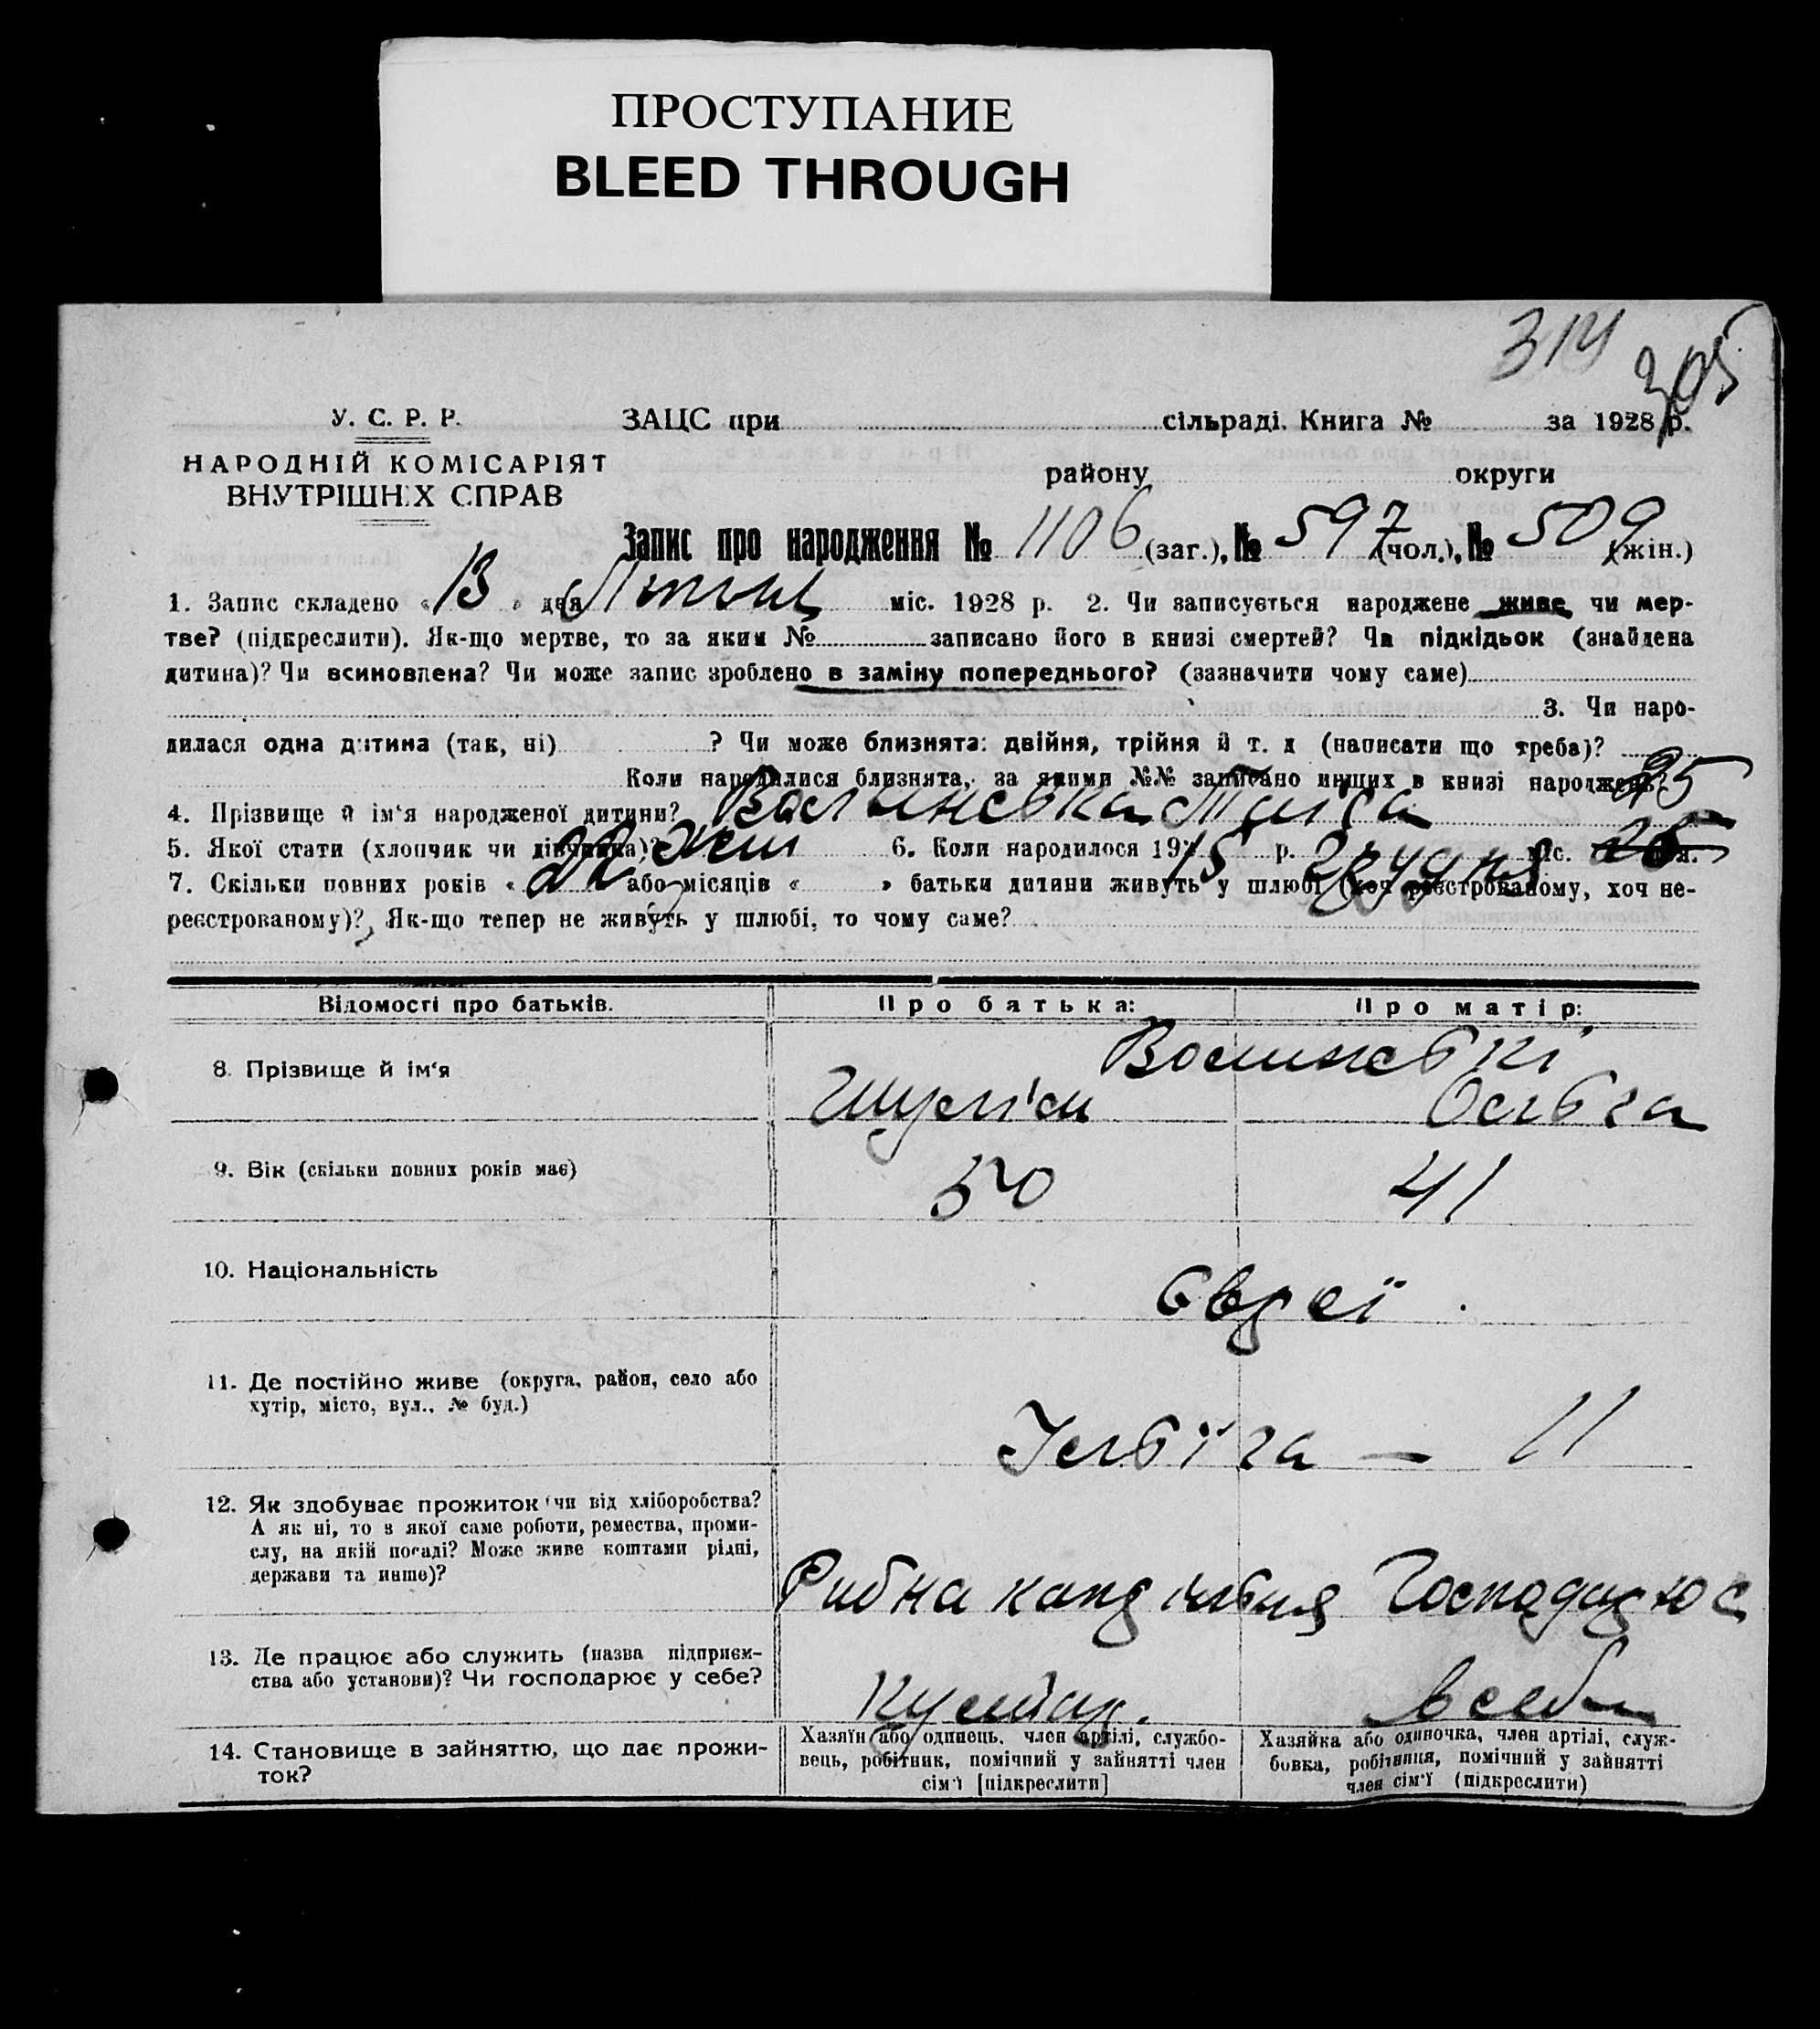 ПРОСТУПАНИЕ
BLEED THROUGH
314
305
У. С. Р. Р.
ЗАЦС при сільраді. Книга № за 1928 р.
НАРОДНІЙ КОМІСАРІЯТ
ВНУТРІШНІХ СПРАВ
району округи
Запис про народження № 1106 (заг.), № 597 (чол.), № 509 (жін.)
1. Запис складено « 13 » дня Липня міс. 1928 р. 2. Чи записується народжене живе чи мер-
тве? (підкреслити). Як-що мертве, то за яким № записано його в книзі смертей? Чи підкідьок (знайдена
дитина)? Чи всиновлена? Чи може запис зроблено в заміну попереднього? (зазначити чому саме)
3. Чи наро-
дилася одна дитина (так, ні) ? Чи може близнята: двійня, трійня й т. д (написати що треба)?
Коли народилися близнята, за якими №№ записано инших в книзі народжень?
4. Прізвище й ім‘я народженої дитини? Волинська
25
5. Якої стати (хлопчик чи дівчинка)? Жін 6. Коли народилося 1915 р. Грудня міс. дня.
7. Скільки повних років « 22 або місяців « » батьки дитини живуть у шлюбі (хоч реєстрованому, хоч не-
реєстрованому)? Як-що тепер не живуть у шлюбі, то чому саме?
Відомості про батьків.
Про батька:
Про матір:
8. Прізвище й ім‘я
Волинські
Шулім
Ольга
9. Вік (скільки повних років має)
50
41
10. Національність
Євреї
11. Де постійно живе (округа, район, село або
хутір, місто, вул., № буд.)
11
12. Як здобуває прожиток чи від хліборобства?
А як ні, то з якої саме роботи, ремества, проми-
слу, на якій посаді? Може живе коштами рідні,
держави та инше)?
Рибна
Господарює
13. Де працює або служить (назва підприєм-
ства або установи)? Чи господарює у себе?
Кустар.
в себе
14. Становище в зайняттю, що дає прожи-
ток?
Хазяїн або одинець, член артілі, службо-
вець, робітник, помічний у зайнятті член
сім‘ї [підкреслити]
Хазяйка або одиночка, член артілі, служ-
бовка, робітниця, помічний у зайнятті
член сім‘ї (підкреслити)